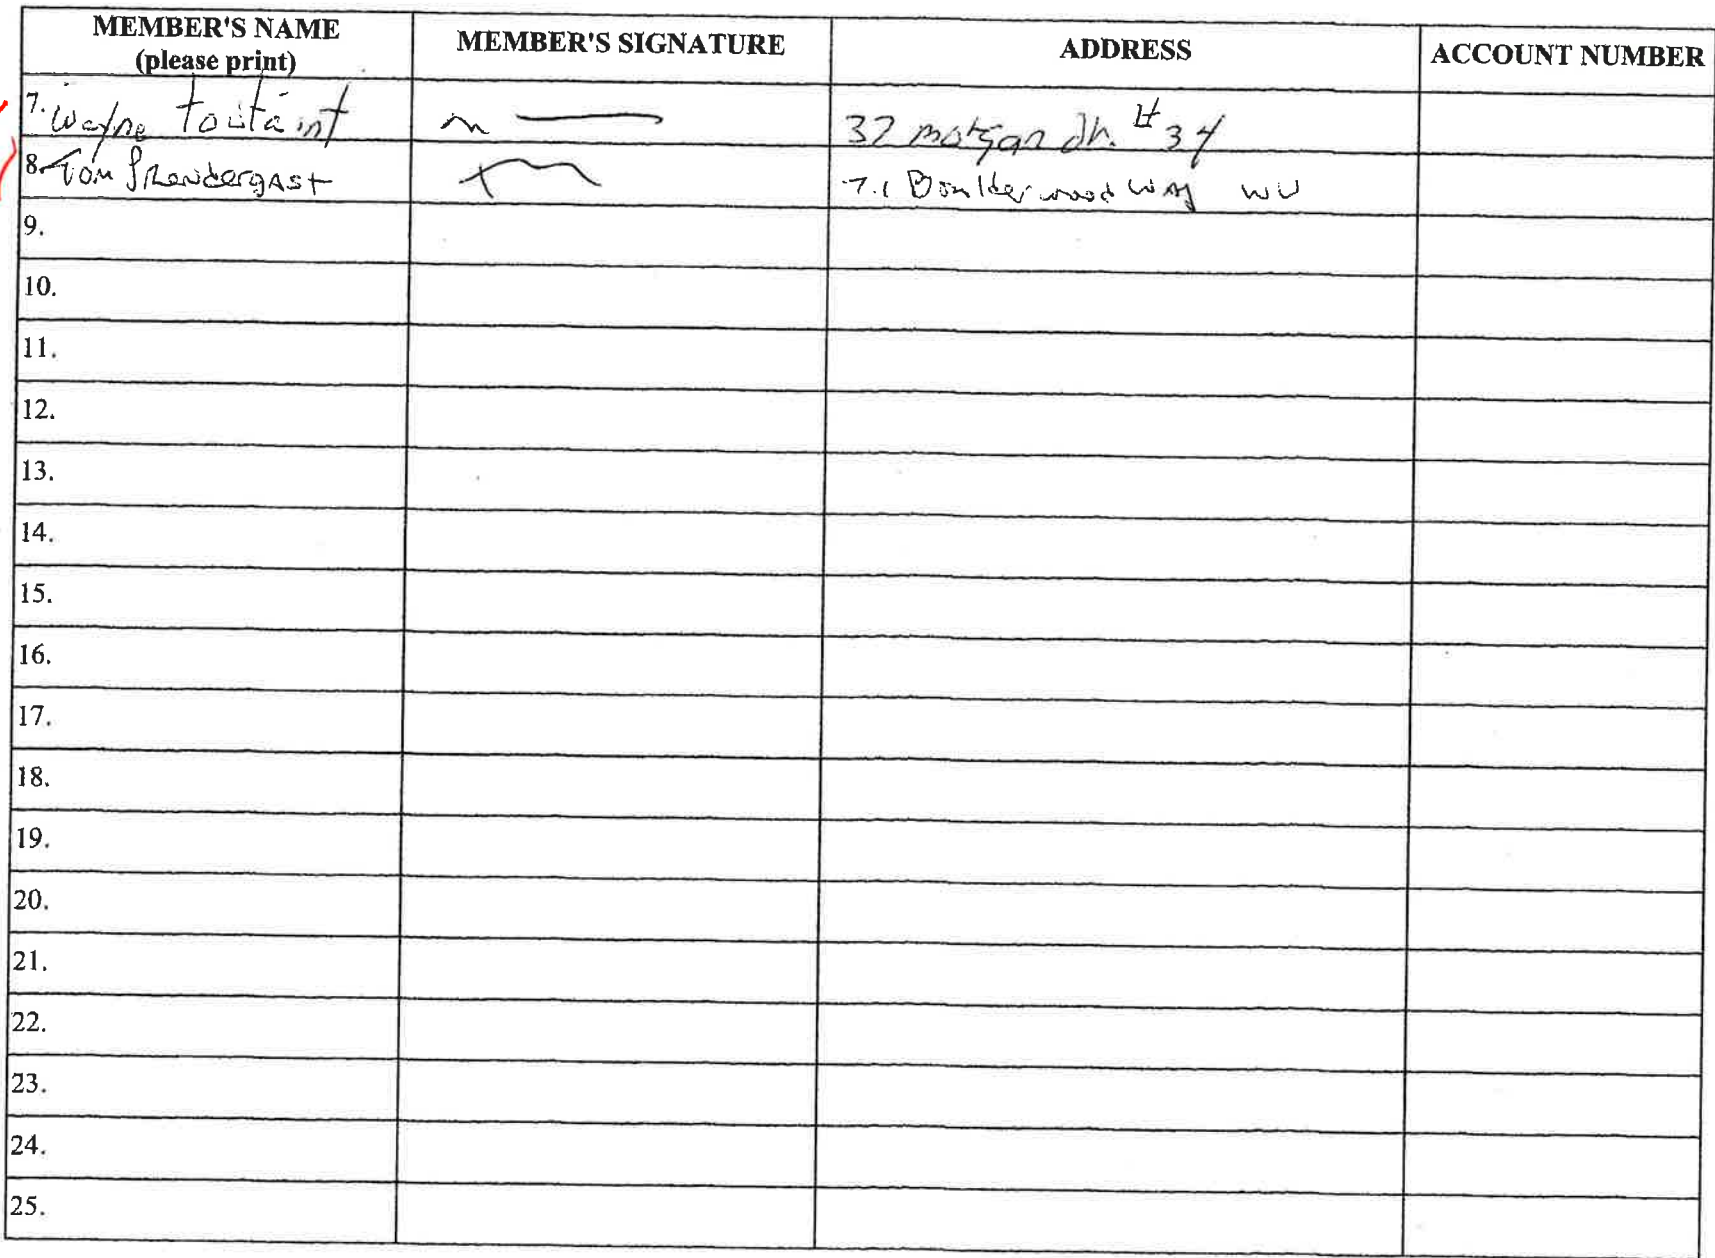 MEMBER'S NAME MEMBER'S SIGNATURE ADDRESS ACCOUNT NUMBER
(please print)
7. Wayne 32 morgan dr. #34
8. Tom Prendergast Boulderwood Way
9.
10.
11.
12.
13.
14.
15.
16.
17.
18.
19.
20.
21.
22.
23.
24.
25.